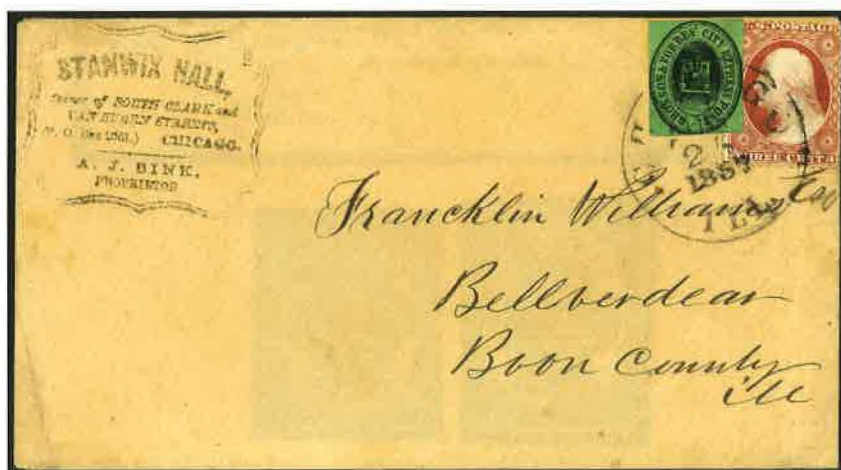 STANWIX HALL,
Corner of SOUTH CLARK and
VAN BUREN STREETS,
CHICAGO.
A. J. BINK,
PROPRIETOR
CITY EXPRESS POST
U.S. POSTAGE
THREE CENTS
185
ILL
Francklin Williams Esq
Bellverdear
Boon County
Ill